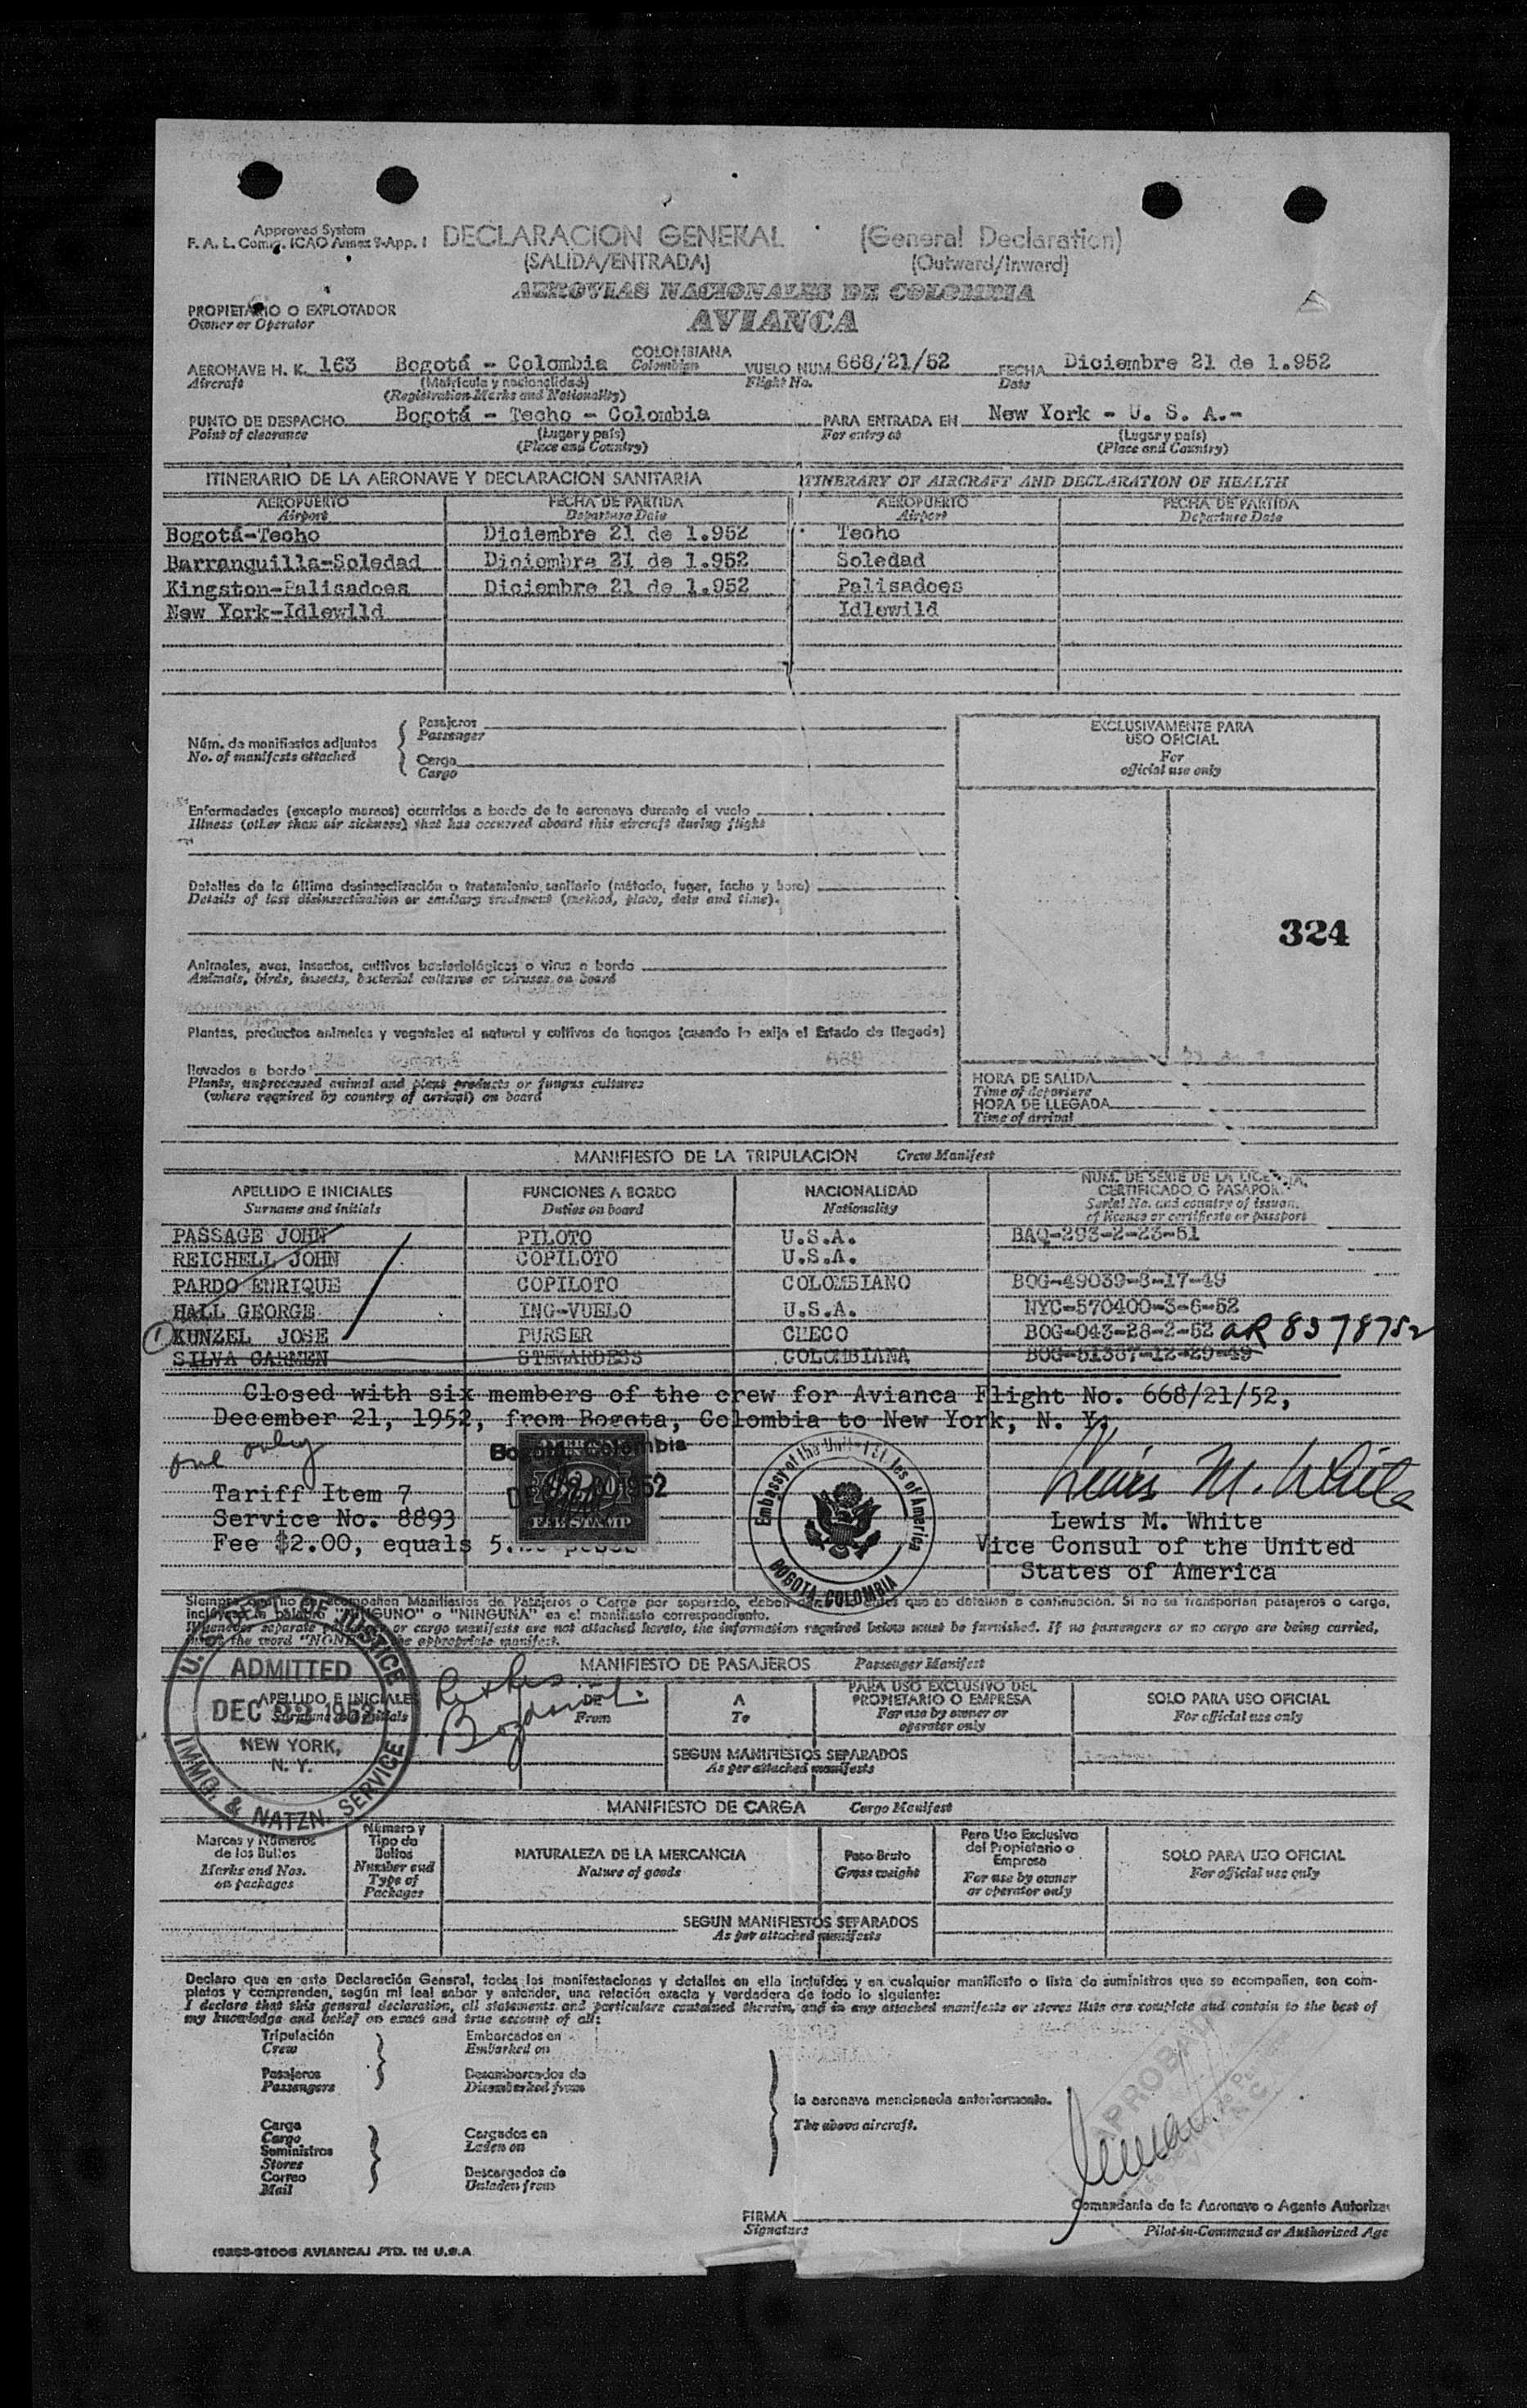 Approved System
F. A. L. Comm. ICAO Annex 9-App. 1
DECLARACION GENERAL (General Declaration)
(SALIDA/ENTRADA) (Outward/Inward)
AEROVIAS NACIONALES DE COLOMBIA
AVIANCA
PROPIETARIO O EXPLOTADOR
Owner or Operator
AERONAVE H. K. 163 Bogotá - Colombia COLOMBIANA VUELO NUM. 668/21/52 FECHA Diciembre 21 de 1.952
Aircraft (Matrícula y nacionalidad) Colombian Flight No. Date
(Registration Marks and Nationality)
PUNTO DE DESPACHO Bogotá - Techo - Colombia PARA ENTRADA EN New York - U. S. A.-
Point of clearance (Lugar y país) For entry at (Lugar y país)
(Place and Country) (Place and Country)
ITINERARIO DE LA AERONAVE Y DECLARACION SANITARIA ITINERARY OF AIRCRAFT AND DECLARATION OF HEALTH
AEROPUERTO FECHA DE PARTIDA AEROPUERTO FECHA DE PARTIDA
Airport Departure Date Airport Departure Date
Bogotá-Techo Diciembre 21 de 1.952 Techo
Barranquilla-Soledad Diciembre 21 de 1.952 Soledad
Kingston-Palisadoes Diciembre 21 de 1.952 Palisadoes
New York-Idlewild Idlewild
Núm. de manifiestos adjuntos
No. of manifests attached
Pasajeros
Passenger
Carga
Cargo
EXCLUSIVAMENTE PARA
USO OFICIAL
For
official use only
Enfermedades (excepto mareos) ocurridas a bordo de la aeronave durante el vuelo
Illness (other than air sickness) that has occurred aboard this aircraft during flight
Detalles de la última desinsectización o tratamiento sanitario (método, lugar, fecha y hora)
Details of last disinsectization or sanitary treatment (method, place, date and time).
324
Animales, aves, insectos, cultivos bacteriológicos o virus a bordo
Animals, birds, insects, bacterial cultures or viruses on board
Plantas, productos animales y vegetales al natural y cultivos de hongos (cuando lo exija el Estado de llegada)
llevados a bordo
Plants, unprocessed animal and plant products or fungus cultures
(where required by country of arrival) on board
HORA DE SALIDA
Time of departure
HORA DE LLEGADA
Time of arrival
MANIFIESTO DE LA TRIPULACION Crew Manifest
APELLIDO E INICIALES FUNCIONES A BORDO NACIONALIDAD NUM. DE SERIE DE LA LICENCIA,
Surname and initials Duties on board Nationality CERTIFICADO O PASAPOR.
Serial No. and country of issuan.
of license or certificate or passport
PASSAGE JOHN PILOTO U.S.A. BAQ-293-2-23-51
REICHELL JOHN COPILOTO U.S.A.
PARDO ENRIQUE COPILOTO COLOMBIANO BOG-49039-8-17-49
HALL GEORGE ING-VUELO U.S.A. NYC-570400-3-6-52
1 KUNZEL JOSE PURSER CHECO BOG-043-28-2-52 AR 8378752
SILVA CARMEN STEWARDESS COLOMBIANA BOG-51367-12-29-49
Closed with six members of the crew for Avianca Flight No. 668/21/52,
December 21, 1952, from Bogota, Colombia to New York, N. Y.
one only
Bogota, Colombia
FEE STAMP
Embassy of the United States of America
BOGOTA, COLOMBIA
Lewis M. White
Tariff Item 7
Service No. 8893
Fee $2.00, equals 5.
Lewis M. White
Vice Consul of the United
States of America
Siempre que no se acompañen Manifiestos de Pasajeros o Carga por separado, deben que se detallan a continuación. Si no se transportan pasajeros o carga,
inclúyase la palabra "NINGUNO" o "NINGUNA" en el manifiesto correspondiente.
Whenever separate passenger or cargo manifests are not attached hereto, the information required below must be furnished. If no passengers or no cargo are being carried,
insert the word "NONE" the appropriate manifest.
U. S. DEPT. OF JUSTICE
ADMITTED
DEC 22 1952
NEW YORK,
N. Y.
IMMG. & NATZN. SERVICE
MANIFIESTO DE PASAJEROS Passenger Manifest
APELLIDO E INICIALES DE A PARA USO EXCLUSIVO DEL SOLO PARA USO OFICIAL
Surname and initials From To PROPIETARIO O EMPRESA For official use only
For use by owner or
operator only
SEGUN MANIFIESTOS SEPARADOS
As per attached manifests
MANIFIESTO DE CARGA Cargo Manifest
Marcas y Números
de los Bultos
Marks and Nos.
on packages
Número y
Tipo de
Bultos
Number and
Type of
Packages
NATURALEZA DE LA MERCANCIA
Nature of goods
Peso Bruto
Gross weight
Para Uso Exclusivo
del Propietario o
Empresa
For use by owner
or operator only
SOLO PARA USO OFICIAL
For official use only
SEGUN MANIFIESTOS SEPARADOS
As per attached manifests
Declaro que en esta Declaración General, todas las manifestaciones y detalles en ella incluídos y en cualquier manifiesto o lista de suministros que se acompañen, son com-
pletos y comprenden, según mi leal saber y entender, una relación exacta y verdadera de todo lo siguiente:
I declare that this general declaration, all statements and particulars contained therein, and in any attached manifests or stores lists are complete and contain to the best of
my knowledge and belief an exact and true account of all:
Tripulación
Crew
Pasajeros
Passengers
Embarcados en
Embarked on
Desembarcados de
Disembarked from
Carga
Cargo
Suministros
Stores
Correo
Mail
Cargados en
Laden on
Descargados de
Unladen from
la aeronave mencionada anteriormente.
The above aircraft.
APROBADO
FIRMA
Signature
Comandante de la Aeronave o Agente Autoriza
Pilot-in-Command or Authorised Age
AVIANCA PTD. IN U.S.A